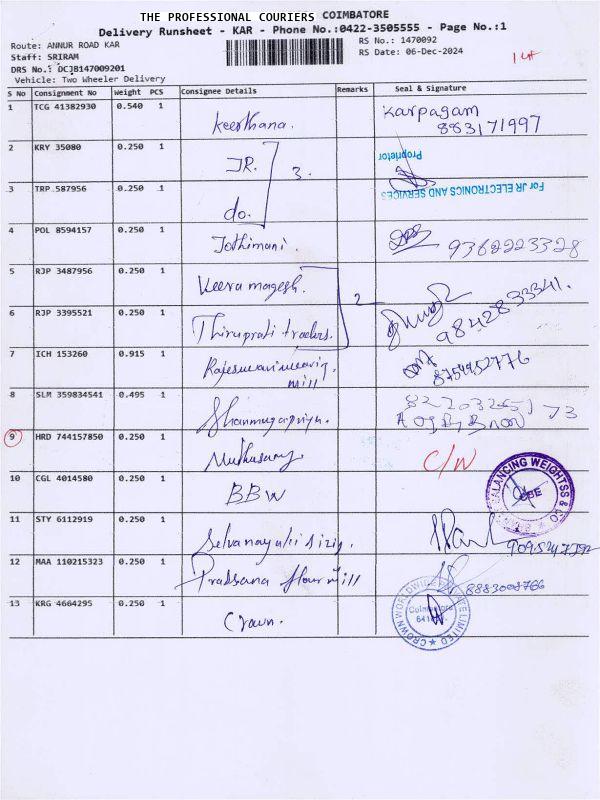 THE PROFESSIONAL COURIERS COIMBATORE
Delivery Runsheet - KAR - Phone No.:0422-3505555 - Page No.:1
Route: ANNUR ROAD KAR RS No.: 1470092
Staff: SRIRAM RS Date: 06-Dec-2024
DRS No.: DCJB147009201
Vehicle: Two Wheeler Delivery
S No Consignment No Weight PCS Consignee Details Remarks Seal & Signature
1 TCG 41382930 0.540 1 Keerthana. Karpagam
883171997
2 KRY 35080 0.250 1 JR. 3. Proprietor
3 TRP 587956 0.250 1 do. For JR ELECTRONICS AND SERVICES
4 POL 8594157 0.250 1 Jothimani. 9362223328
5 RJP 3487956 0.250 1 Veera magesh. 2
6 RJP 3395521 0.250 1 Thirupati traders. 9842833341.
7 ICH 153260 0.915 1 mill
8 SLM 359834541 0.495 1 Shanmugapriya. 73
9 HRD 744157850 0.250 1 Muthusamy C/N
10 CGL 4014580 0.250 1 BBW BALANCING WEIGHTSS & CO CBE
11 STY 6112919 0.250 1
12 MAA 110215323 0.250 1 flour mill 8883008766
13 KRG 4664295 0.250 1 Crown. CROWN WORLDWIDE PRIVATE LIMITED Coimbatore